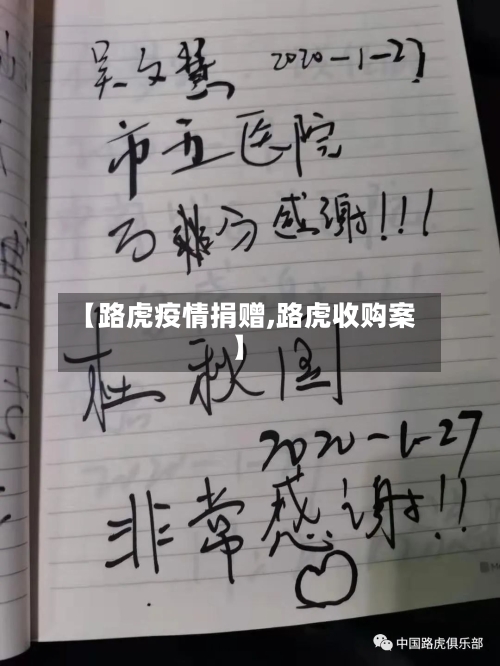 吴文慧 2020-1-27
市五医院
万분感谢!!!
【路虎疫情捐赠,路虎收购案
】
杜秋国
2020-1-27
非常感谢!!
中国路虎俱乐部